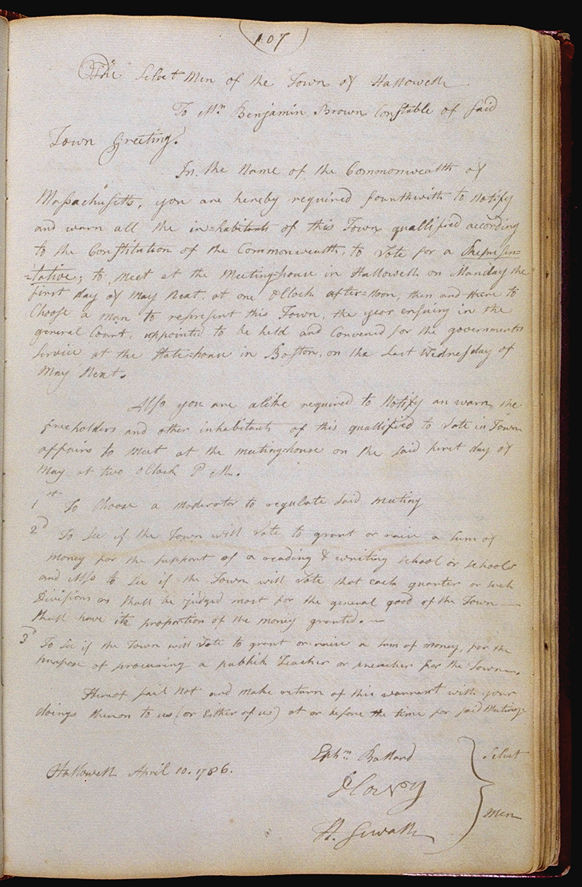 107
The Selectmen of the Town of Hallowell
To Mr. Benjamin Brown Constable of said
Town Greeting.
In the Name of the Commonwealth of
Massachusetts, you are hereby required fourthwith to Notify
and warn all the inhabitants of this Town quallified according
to the Constitation of the Commonwealth, to Vote for a Represen-
tative; to, Meet at the Meetinghouse in Hallowell on Manday the
first day of May Next, at one oClock after-Noon, then and there to
Choose a Man to represent this Town, the year ensuing in the
general Court, appointed to be held and Convened for the governments
Service at the State-house in Boston, on the last Wednesday of
May Next.
Also you are alike required to Notify an warn the
freeholders and other inhabitants of this quallified to Vote in Town
affairs to Meet at the meetinghouse on the said first day of
May at two oClock P.M.
1st To Choose a Moderator to regulate said meeting
2d To See if the Town will Vote to grant or raise a Sum of
Money for the support of a reading & writing school or schools
and Also to See if the Town will Vote that each quarter or such
Divisions as shall be judged most for the general good of the Town
shall have its proportion of the money granted.
3d To See if the Town will Vote to grant or raise a Sum of money, for the
purpose of procuring a publick Teacher or preacher for the Town.
Hereof fail Not and make return of this warrent with your
doings thereon to us (or Either of us) at or before the time for said Meeting
Ephm Ballard
Selectt
Hallowell April 10. 1786.
J Coury
Men
H. Sewall